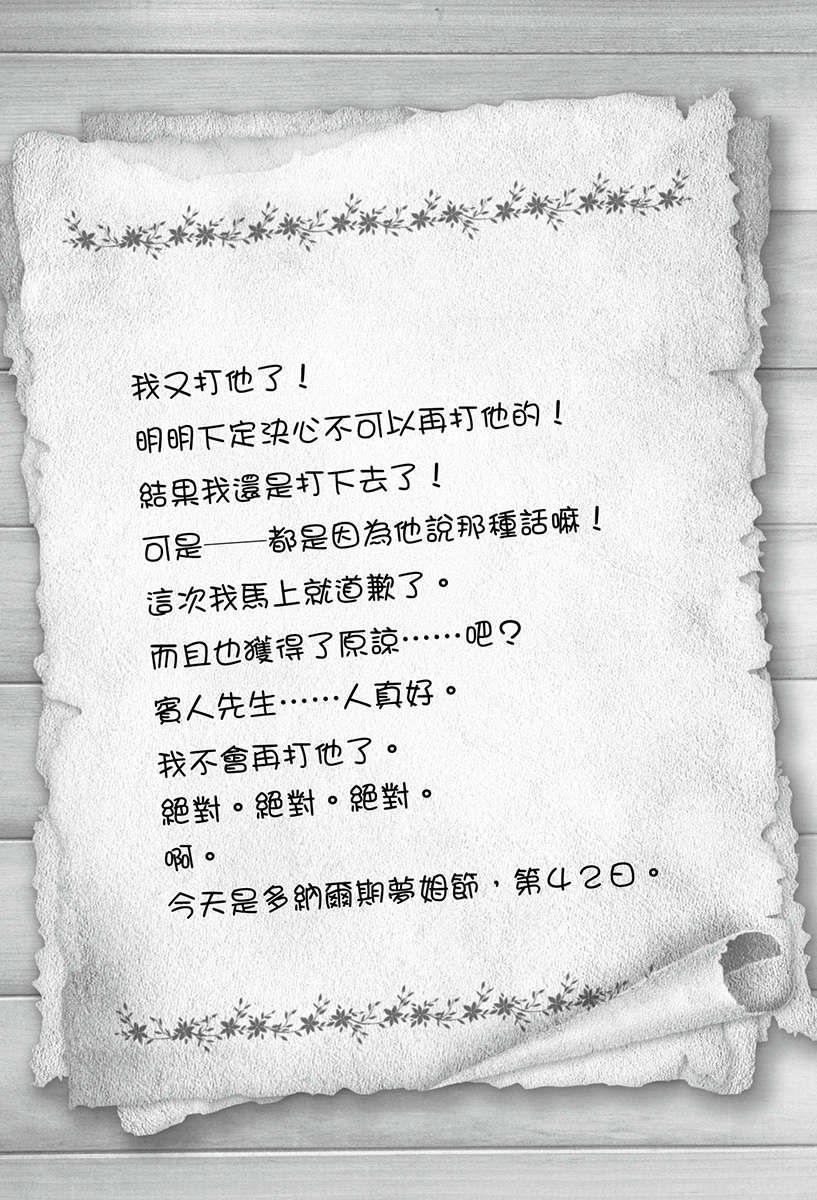 我又打他了！
明明下定決心不可以再打他的！
結果我還是打下去了！
可是——都是因為他說那種話嘛！
這次我馬上就道歉了。
而且也獲得了原諒……吧？
賓人先生……人真好。
我不會再打他了。
絕對。絕對。絕對。
啊。
今天是多納爾期夢姆節，第４２日。